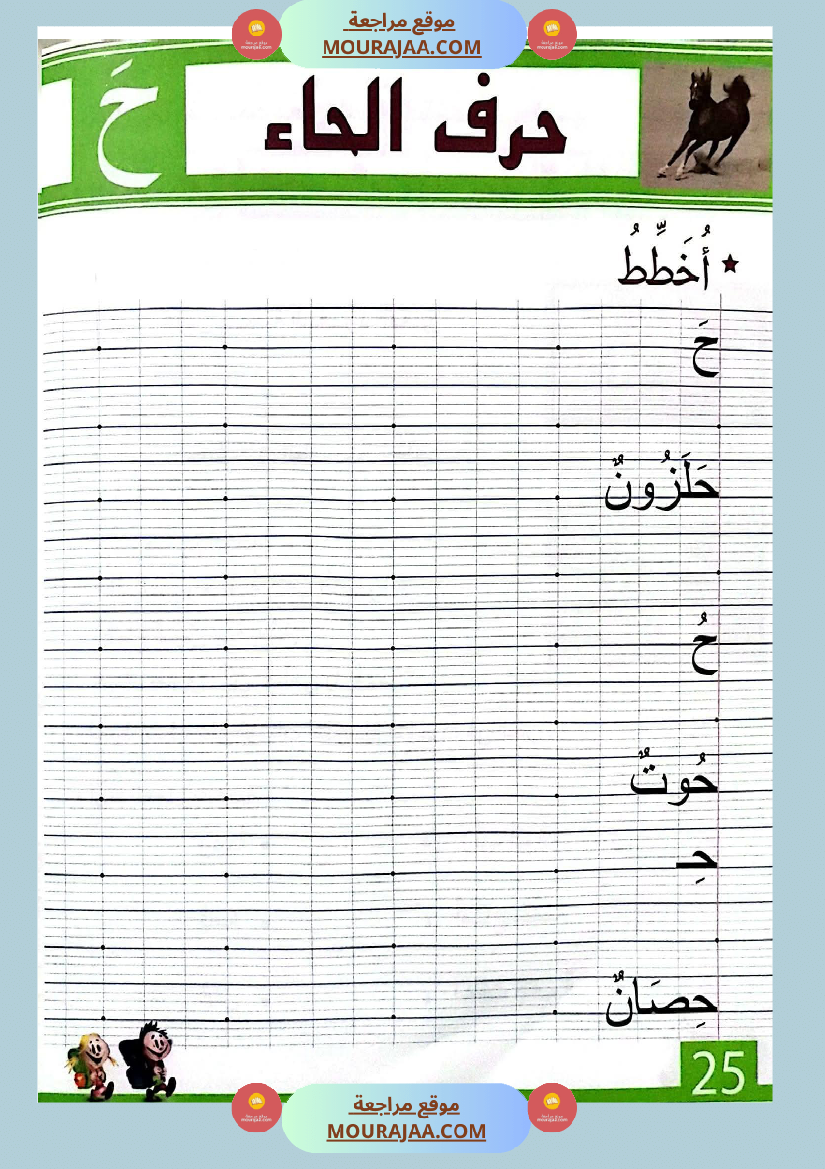 موقع مراجعة
MOURAJAA.COM
حرف الحاء
حَ
أُخَطِّطُ
حَ
حَلَزُونٌ
حُ
حُوتٌ
حِـ
حِصَانٌ
25
موقع مراجعة
MOURAJAA.COM